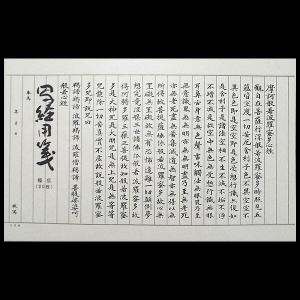 摩訶般若波羅蜜多心経
觀自在菩薩行深般若波羅蜜多時照見五
蘊皆空度一切苦厄舍利子色不異空空不
異色色即是空空即是色受想行識亦復如
是舍利子是諸法空相不生不滅不垢不淨
不增不減是故空中無色無受想行識無眼
耳鼻舌身意無色聲香味觸法無眼界乃至
無意識界無無明亦無無明盡乃至無老死
亦無老死盡無苦集滅道無智亦無得以無
所得故菩提薩埵依般若波羅蜜多故心無
罣礙無罣礙故無有恐怖遠離一切顛倒夢
想究竟涅槃三世諸佛依般若波羅蜜多故
得阿耨多羅三藐三菩提故知般若波羅蜜
多是大神咒是大明咒是無上咒是無等等
咒能除一切苦真實不虛故說般若波羅蜜
多咒即說咒曰
羯諦羯諦波羅羯諦波羅僧羯諦菩提娑婆訶
般若心經
写経用箋
(20枚)
為
年月日